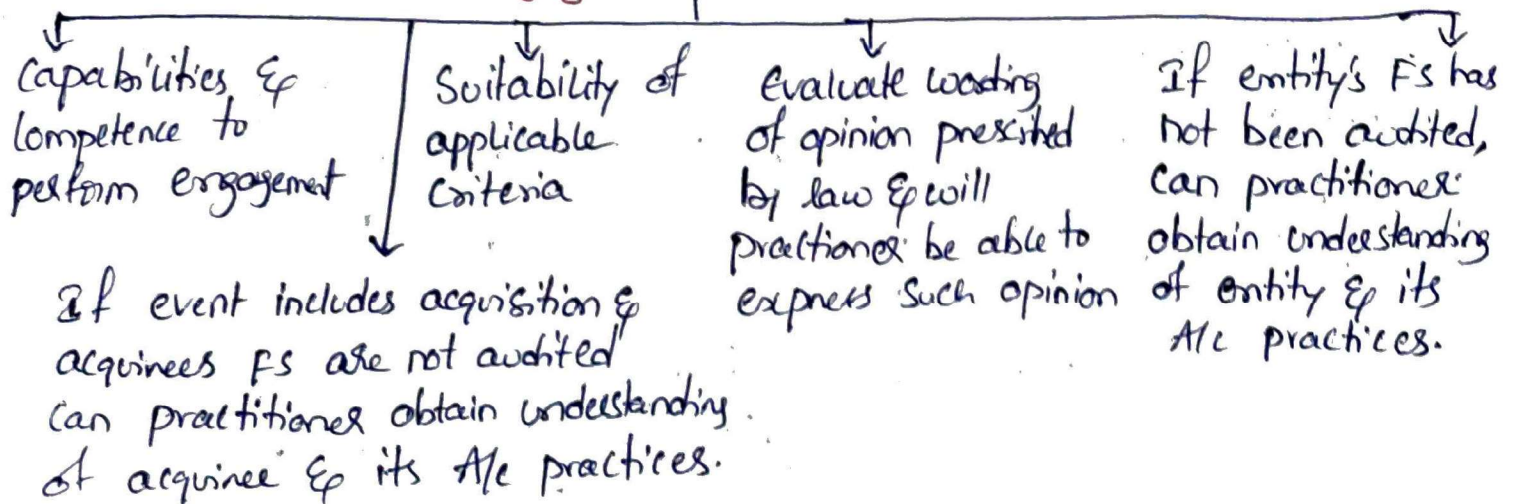 Capabilities &
Competence to
perform engagement
Suitability of
applicable
Criteria
Evaluate wording
of opinion prescribed
by law & will
practioner be able to
express such opinion
If entity's FS has
not been audited,
can practitioner
obtain understanding
of entity & its
A/c practices.
If event includes acquisition &
acquirees FS are not audited
can practitioner obtain understanding.
of acquiree & its A/c practices.